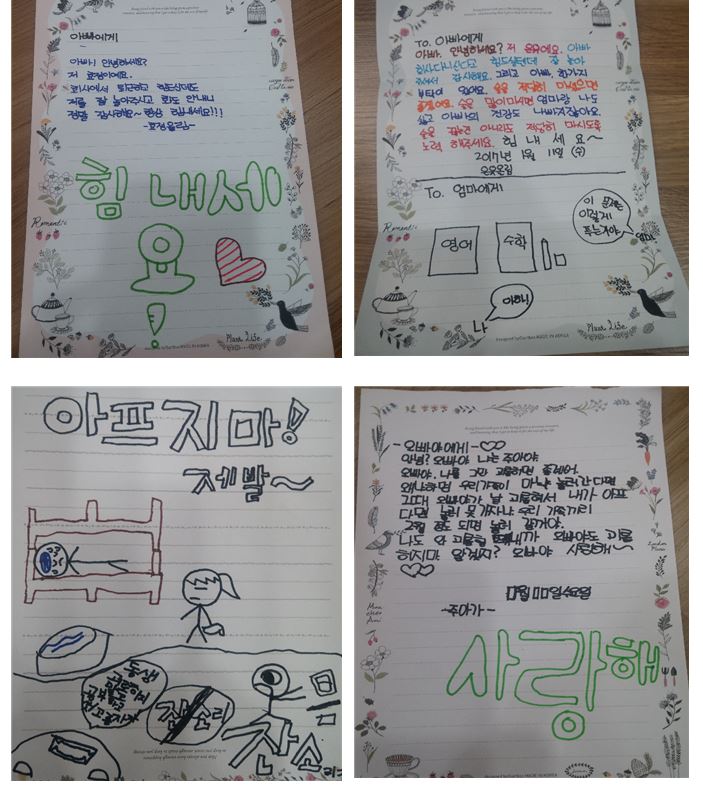 아빠에게
아빠! 안녕하세요?
저 효정이에요.
회사에서 퇴근하고 힘드실텐데
저를 잘 놀아주시고 화도 안내니
정말 감사해요~ 항상 힘내세요!!!
-효정올림-
힘 내세
요
!
Romantic
Plant Life
To. 아빠에게
아빠, 안녕하세요? 저 은유예요. 아빠
회사다니신다고 힘드실텐데 잘 놀아
주셔서 감사해요. 그리고 아빠, 한가지
부탁이 있어요. 술을 적당히 마셨으면
좋겠어요. 술을 많이마시면 엄마랑 나도
싫고 아빠의 건강도 나빠지잖아요.
술을 끊는건 아니라도 적당히 마시도록
노력 해주세요. 힘 내 세 요~
2017년 1월 11일 (수)
은유올림
To. 엄마에게
이 문제는
이렇게
푸는거야.
영어
수학
엄마
아하!
나
Romantic
Plant Life
아프지마!
제발~
동생
잔소리
잔소
리
-오빠야에게-♡♡
안녕? 오빠야 나는 주아야
오빠야. 나를 그만 괴롭히면 좋겠어.
왜냐하면 우리가족이 만약 놀러간다면
그때 오빠야가 날 괴롭혀서 내가 아프
다면 놀러 못가자나 우리 가족끼리
2월 정도 되면 놀러 갈거야.
나도 안 괴롭힐 오빠야도 괴롭
히지마 알겠지? 오빠야 사랑해~
♡♡
1월 11일수요일
-주아가-
사랑해